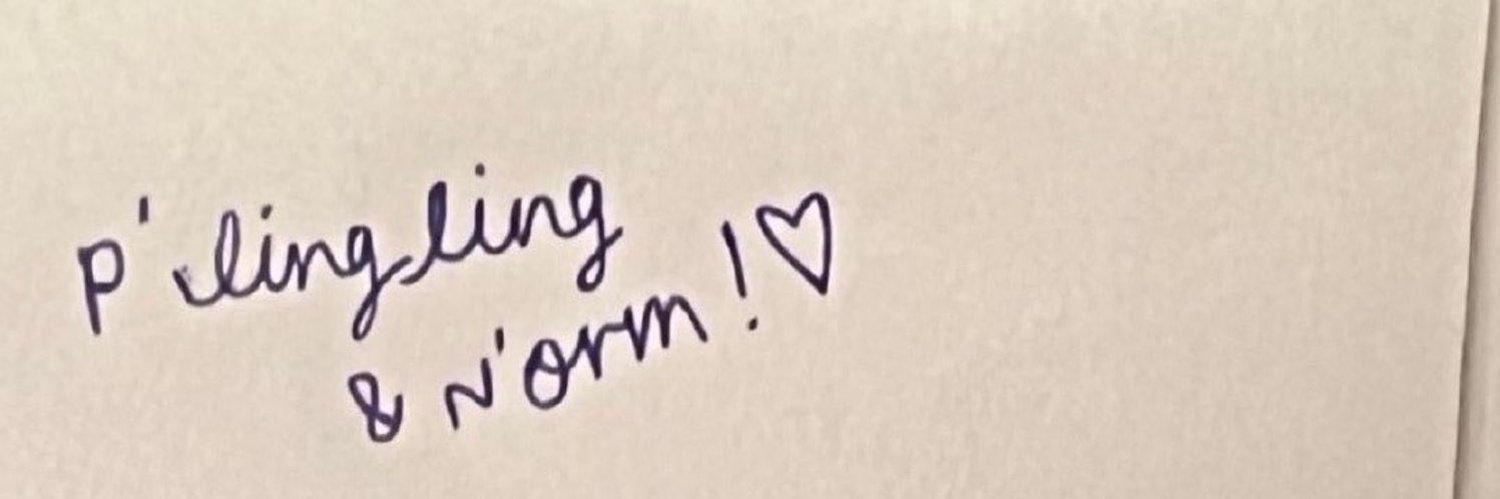 p'lingling
& N'orm!♡